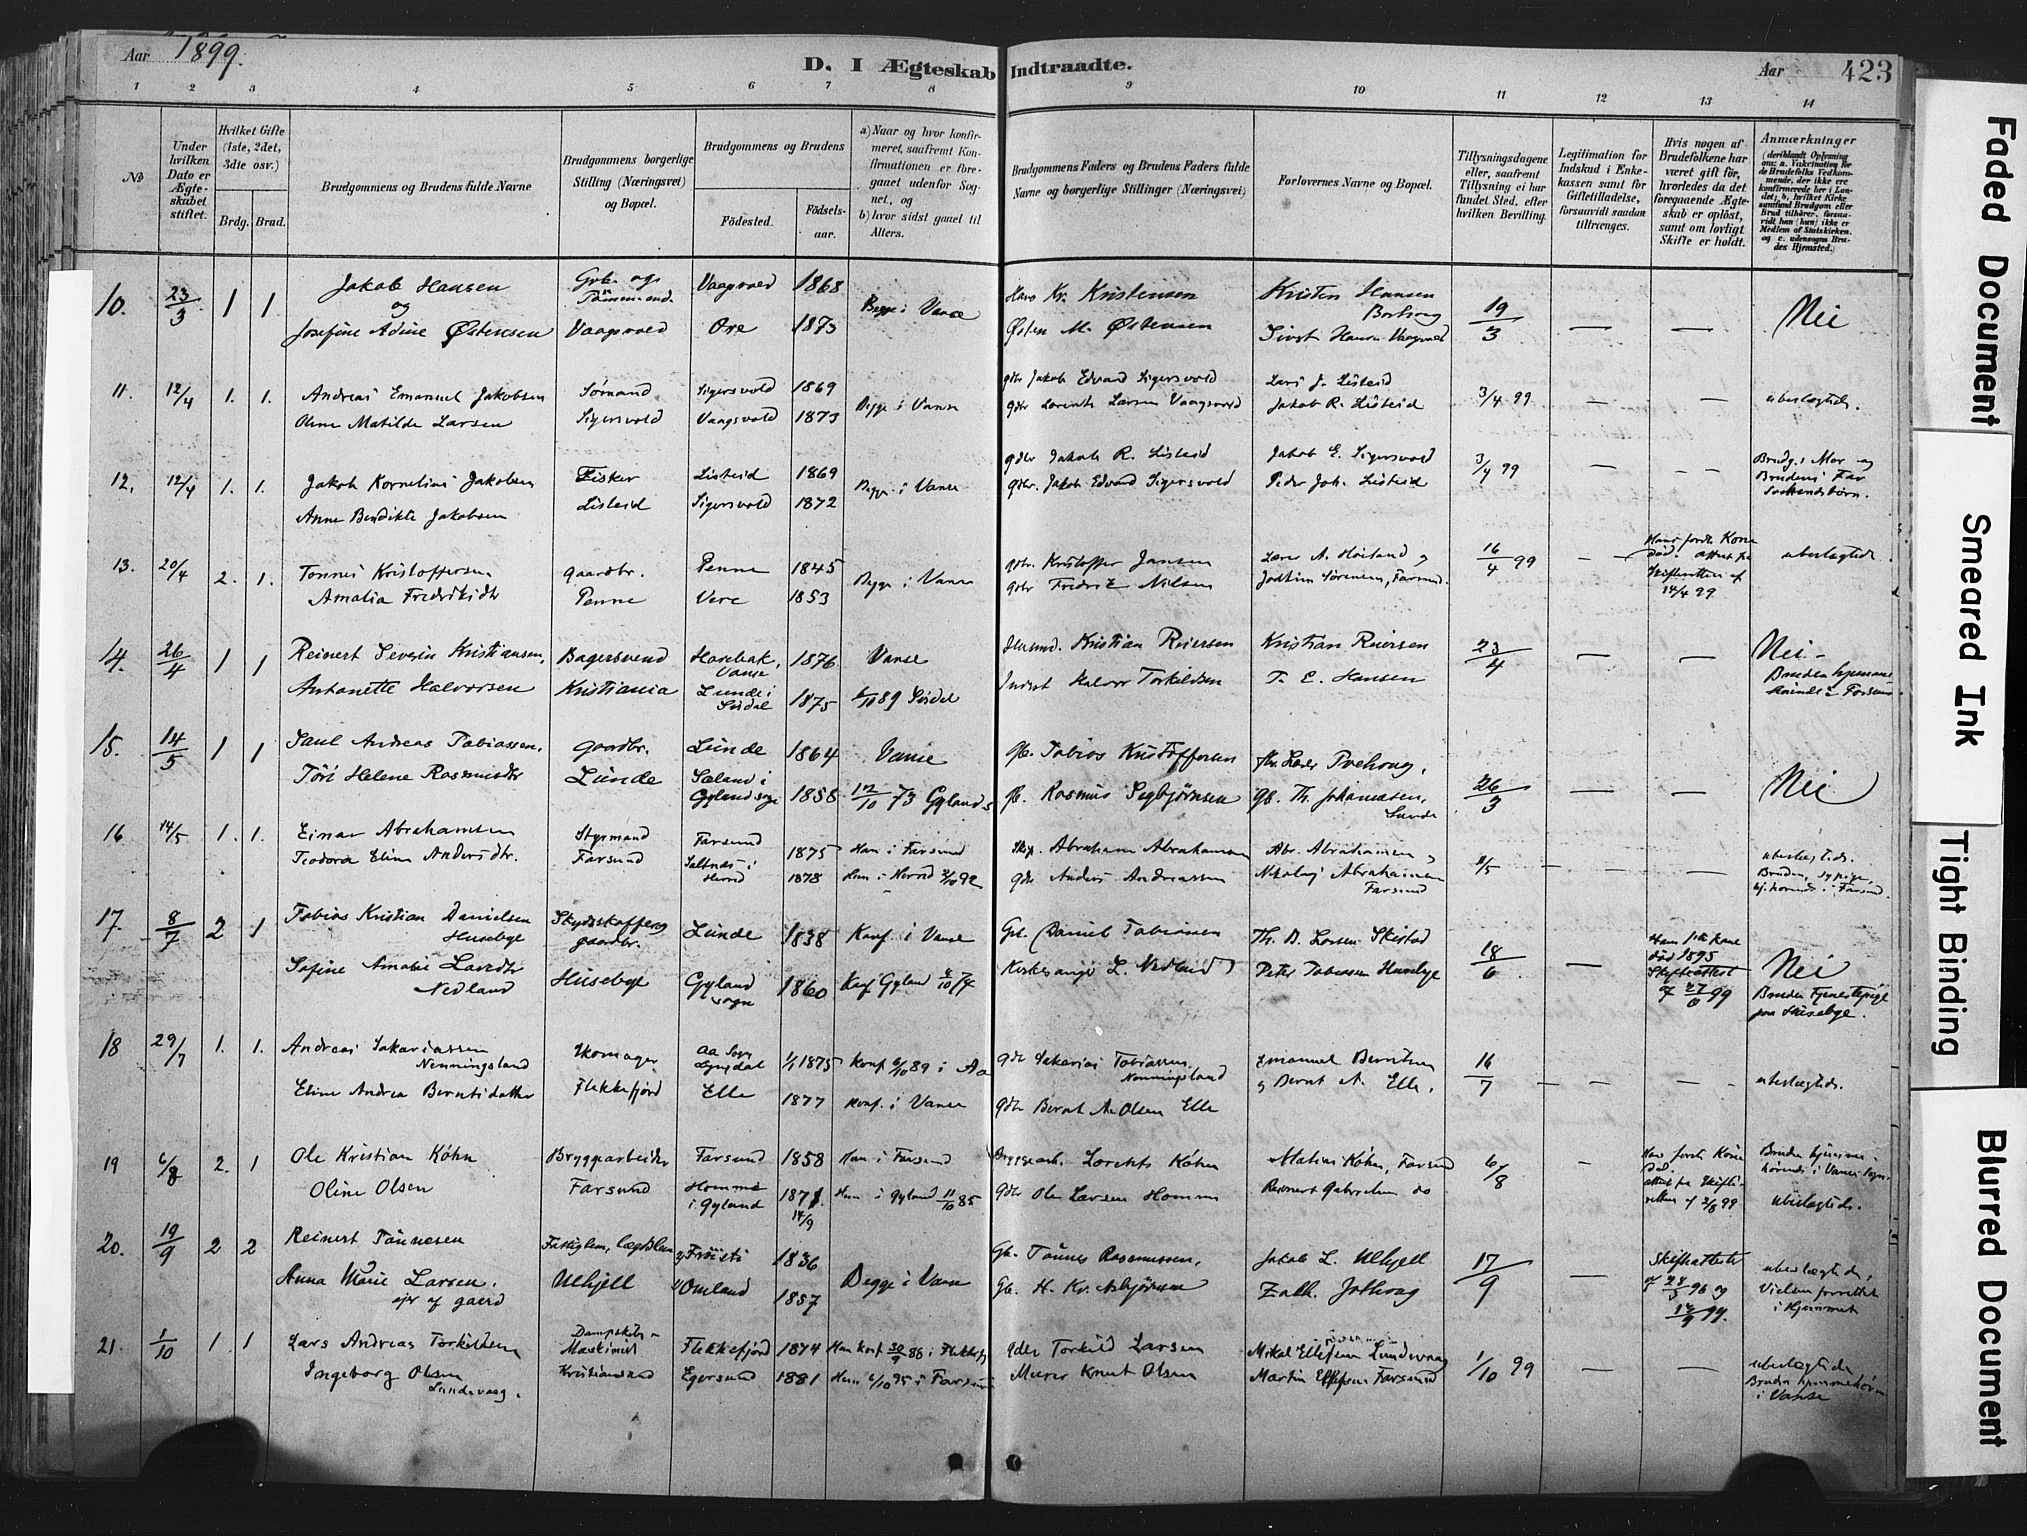 Aar 1899.
D. I Ægteskab Indtraadte.
Aar 423
1 2 3 4 5 6 7 8 9 10 11 12 13 14
No
Under hvilken Dato er Ægteskabet stiftet.
Hvilket Gifte (1ste, 2det, 3die osv.)
Brdg. Brud.
Brudgommens og Brudens fulde Navne
Brudgommens borgerlige Stilling (Næringsvei) og Bopæl.
Brudgommens og Brudens
Fødested.
Fødselsaar.
a) Naar og hvor konfirmeret, saafremt Konfirmationen er foregaaet udenfor Sognet, og
b) hvor sidst gaaet til Alters.
Brudgommens Faders og Brudens Faders fulde Navne og borgerlige Stillinger (Næringsvei)
Forlovernes Navne og Bopæl.
Tillysningsdagene eller, saafremt Tillysning ei har fundet Sted, efter hvilken Bevilling.
Legitimation for Indskud i Enkekassen samt for Giftetilladelse, forsaavidt saadan tiltrænges.
Hvis nogen af Brudefolkene har været gift før, hvorledes da det foregaaende Ægteskab er opløst, samt om lovligt Skifte er holdt.
Anmærkninger
(deriblandt Oplysning om: a. Vaccination for de Brudefolks Vedkommende, der ikke ere konfirmerede her i Landet; b. hvilket Kirkesamfund Brudgom eller Brud tilhører, forsaavidt han (hun) ikke er Medlem af Statskirken, og c. udensogns Brudes Hjemsted.)
10. 23/3 1 1. Jakob Hansen Vaagsvold 1868 Begge i Vanse Hans Kr. Kristensen Kristen Hansen 19/3 — — Nei
og
Josefine Adine Østensen Vaagsvold Ore 1873 Østen M. Østensen Sivert Hansen Vaagvold
11. 12/4 1. 1. Andreas Emanuel Jakobsen Sømand Sigersvold 1869 Begge i Vanse gdbr Jakob Edvard Sigersvold Lars J. Listeid 3/4 99 — — ubeslægtede.
Olene Matilde Larsen Sigersvold Vaagsvold 1873 gdbr Larsen Vaagsvold Jakob R. Listeid
12. 12/4 1. 1. Jakob Kornelius Jakobsen Fisker Listeid 1869 Begge i Vanse gdbr Jakob R. Listeid Jakob E. Sigersvold 3/4 99 — — Brudg.s Mor og
Anne Bendikte Jakobsen Listeid Sigersvold 1872 gdbr. Jakob Edvard Sigersvold Peder Joh. Listeid Brudens Far Søskendebørn.
13. 20/4 2. 1. Tønnes Kristoffersen Gaardbr. Penne 1845 Begge i Vanse gdbr. Kristoffer Jansen Lærer A. Høiland og 16/4 99 — Hans første Kone død. Attest fra Skifteretten af 14/4 99 ubeslægtede.
Amalia Fredriksdtr Penne Vere 1853 gdbr Fredrik Nielsen Sørensen, Farsund.
14. 26/4 1 1 Reinert Severin Kristiansen, Bagersvend Vanse 1876 Vanse Kristian Reiersen Kristian Reiersen 23/4 — — Nei –
Antonette Halvorsen Kristiania Lunde i Sirdal 1875 6/10 89 Sirdal Indrst Halvor Torkildsen T. E. Hansen
15. 14/5 1 1 Saul Andreas Tobiassen, Gaardbr. Lunde 1864 Vanse Gb. Tobias Kristoffersen 26/3 — — Nei
Tóri Helene Rasmusdtr Lunde Sæland i Gyland sogn 1858 12/10 73 Gylands Gb. Rasmus Sigbjørnsen Gb. Th. Johannesen, Lunde
16 14/5 1. 1. Einar Abrahamsen Styrmand Farsund 1875 Han i Farsund Skip. Abraham Abrahamsen Abr. Abrahamsen og 11/5 — — ubeslægtede.
Teodora Eline Andersdtr. Farsund Saltnes i Herred 1878 Hun i Herred 2/10 92 gdbr Anders Andreassen Nikolay Abrahamsen Farsund Bruden, Sypige, hj.hørende i Farsund
17. 8/7 2 1 Tobias Kristian Danielsen Huseby Skydsskaffer og gaardbr. Lunde 1838 Konf. i Vanse Gbr. Daniel Tobiassen Th. B. Larsen Skeistad 18/6 — Ham 1ste kone død 1895 Skifteattest af 27/6 99 Nei
Sofine Amalie Larsdtr Nedland Huseby Gyland sogn 1860 Konf Gyland 4/10 74 Kirkesanger L. Nedland Peter Tobiassen Huseby Bruden Tjenestepige paa Huseby.
18 29/7 1. 1. Andreas Sakariassen Nenningsland Skomager Aa Sogn Lyngdal 1/1 1875 Konf 6/10 89 i Aa gdbr Sakarias Tobiassen Nenningsland Emanuel Berntsen 16/7 — — ubeslægtede.
Eline Andrea Berntsdatter Flekkefjord Elle 1877 konf. i Vanse gdbr Bernt A. Olsen Elle og Bernt A. Elle.
19 6/8 2. 1 Ole Kristian Køhn Bryggearbeider Farsund 1858 Han i Farsund Bryggearb. Lorents Køhn Matias Køhn, Farsund 6/8 — Hans første Kone død. Attest fra Skifteretten af 2/8 99 Bruden hjemmehørende i Vanse Sogn.
Oline Olsen Farsund Homme i Gyland 1871. 14/9 Hun i Gyland 11/10 85 gdbr Ole Larsen Homme Reinert Gabrielsen do ubeslægtede.
20. 19/9 2 2 Reinert Tønnesen Fattiglem, lægdslem Frøisti 1836 Begge i Vanse Gb. Tønnes Rasmussen, Jakob L. Ulhjell 17/9 — Skifteattester af 28/3 96 og 12/9 99. ubeslægtede,
Anna Marie Larsen. Ulhjell Omland 1857 Gb. H. Kr. Asbjørnsen Zakh. Jølhoug Vielsen forrettet i Hjemmet
21. 1/10 1 1 Lars Andreas Torkildsen Dampskibs-Maskinist Flekkefjord 1874 Han konf 30/9 88 i Flekkefj gdbr Torkild Larsen Mikal Ellefsen Lundevaag 1/10 99 — — ubeslægtede
Ingeborg Olsen Lundevaag. Kristiansand Egersund 1881 Hun 6/10 95 i Farsund Murer Knut Olsen Martin Ellefsen Farsund Bruden hjemmehør. i Vanse
Faded Document
Smeared Ink
Tight Binding
Blurred Document